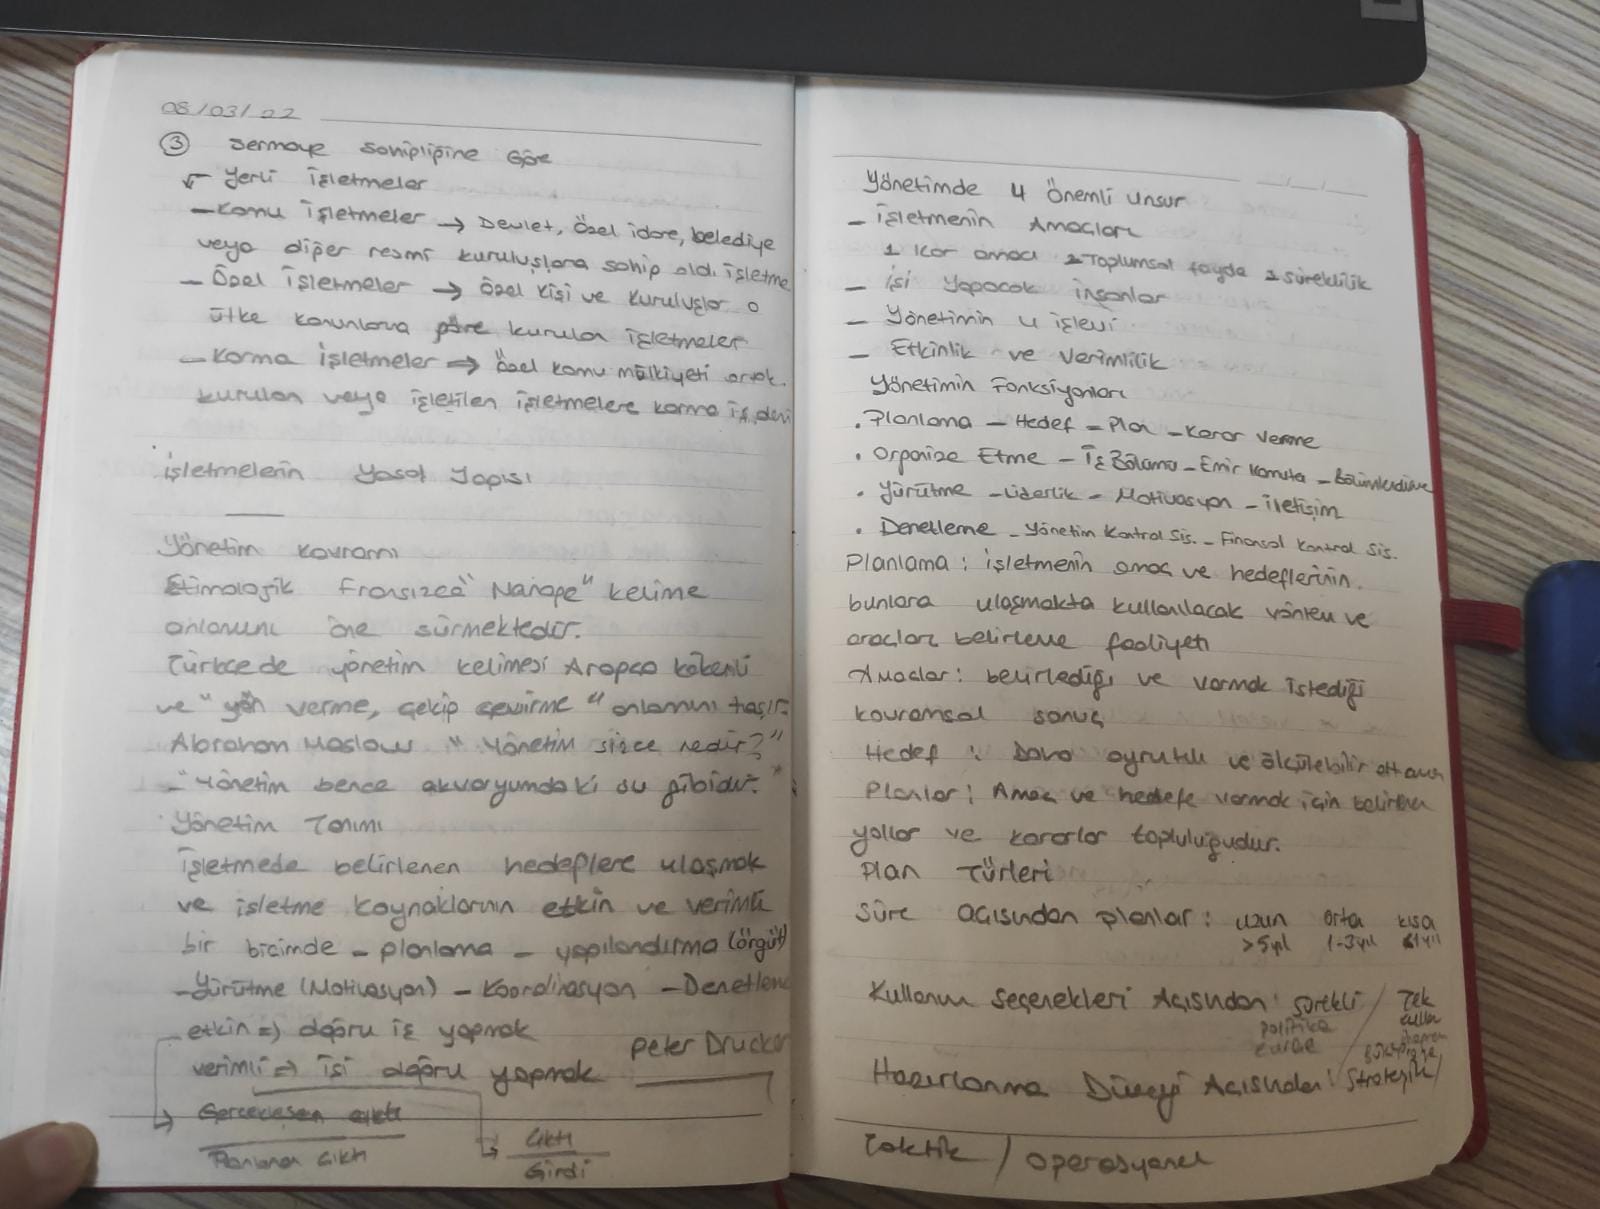 08/03/22
③ Sermaye Sahipliğine Göre
Yerli İşletmeler
- Kamu İşletmeler → Devlet, Özel idare, belediye
veya diğer resmi kuruluşlara sahip oldı işletme
- Özel İşletmeler → özel kişi ve kuruluşlar o
ülke kanunlarına göre kurulan işletmeler
- Karma İşletmeler ⇒ özel kamu mülkiyeti ortak.
kurulan veya işletilen işletmelere karma iş. deni
İşletmelerin Yasal Yapısı
Yönetim kavramı
Etimolojik Fransızca "Manage" kelime
anlamını öne sürmektedir.
Türkcede yönetim kelimesi Arapça kökenli
ve "yön verme, çekip çevirme" anlamını taşır.
Abraham Maslow "Yönetim sizce nedir?"
- "Yönetim bence akvaryumdaki su gibidir."
Yönetim Tanımı
İşletmede belirlenen hedeflere ulaşmak
ve işletme kaynaklarının etkin ve verimli
bir bicimde - planlama - yapılandırma (örgüt)
- Yürütme (Motivasyon) - Koordinasyon - Denetleme
etkin ⇒ doğru iş yapmak
Peter Drucker
verimli ⇒ işi doğru yapmak
Gerçekleşen çıktı
Planlanan Çıktı
Çıktı
Girdi
Yönetimde 4 Önemli Unsur
- İşletmenin Amaçları
1 Kar amacı 2 Toplumsal fayda 3 Süreklilik
- İşi Yapacak İnsanlar
- Yönetimin 4 işlevi
- Etkinlik ve Verimlilik
Yönetimin Fonksiyonları
. Planlama - Hedef - Plan - Karar Verme
. Organize Etme - İş Bölümü - Emir Komuta - Bölümlendirme
. Yürütme - Liderlik - Motivasyon - İletişim
. Denetleme - Yönetim Kontrol Sis. - Finansal Kontrol Sis.
Planlama : İşletmenin amaç ve hedeflerinin.
bunlara ulaşmakta kullanılacak yöntem ve
araçları belirleme faaliyeti
Amaçlar : belirlediği ve varmak istediği
kavramsal sonuç
Hedef : Daha ayrıntılı ve ölçülebilir alt amaç
Planlar : Amaç ve hedefe varmak için belirlenen
yollar ve kararlar topluluğudur.
Plan Türleri
Süre açısından planlar : uzun orta kısa
>5yıl 1-3yıl <1yıl
Kullanım Seçenekleri Açısından : Sürekli / Tek
politika
kullanım
Hazırlanma Düzeyi Açısından : Stratejik /
Taktik / Operasyonel